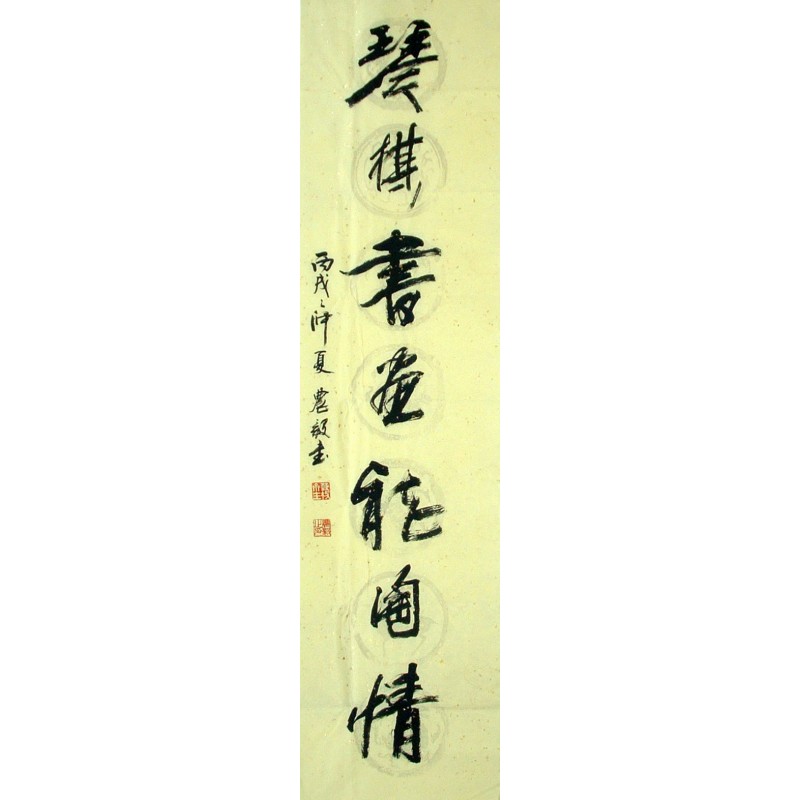 琴棋書画能陶情
丙戌之年夏農毅書